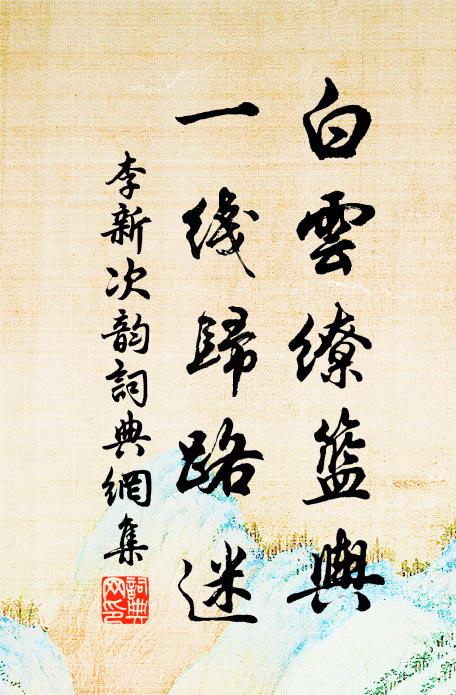 白雲繚籃輿
一綫歸路迷
李新次韵詞典網集
詞典網印